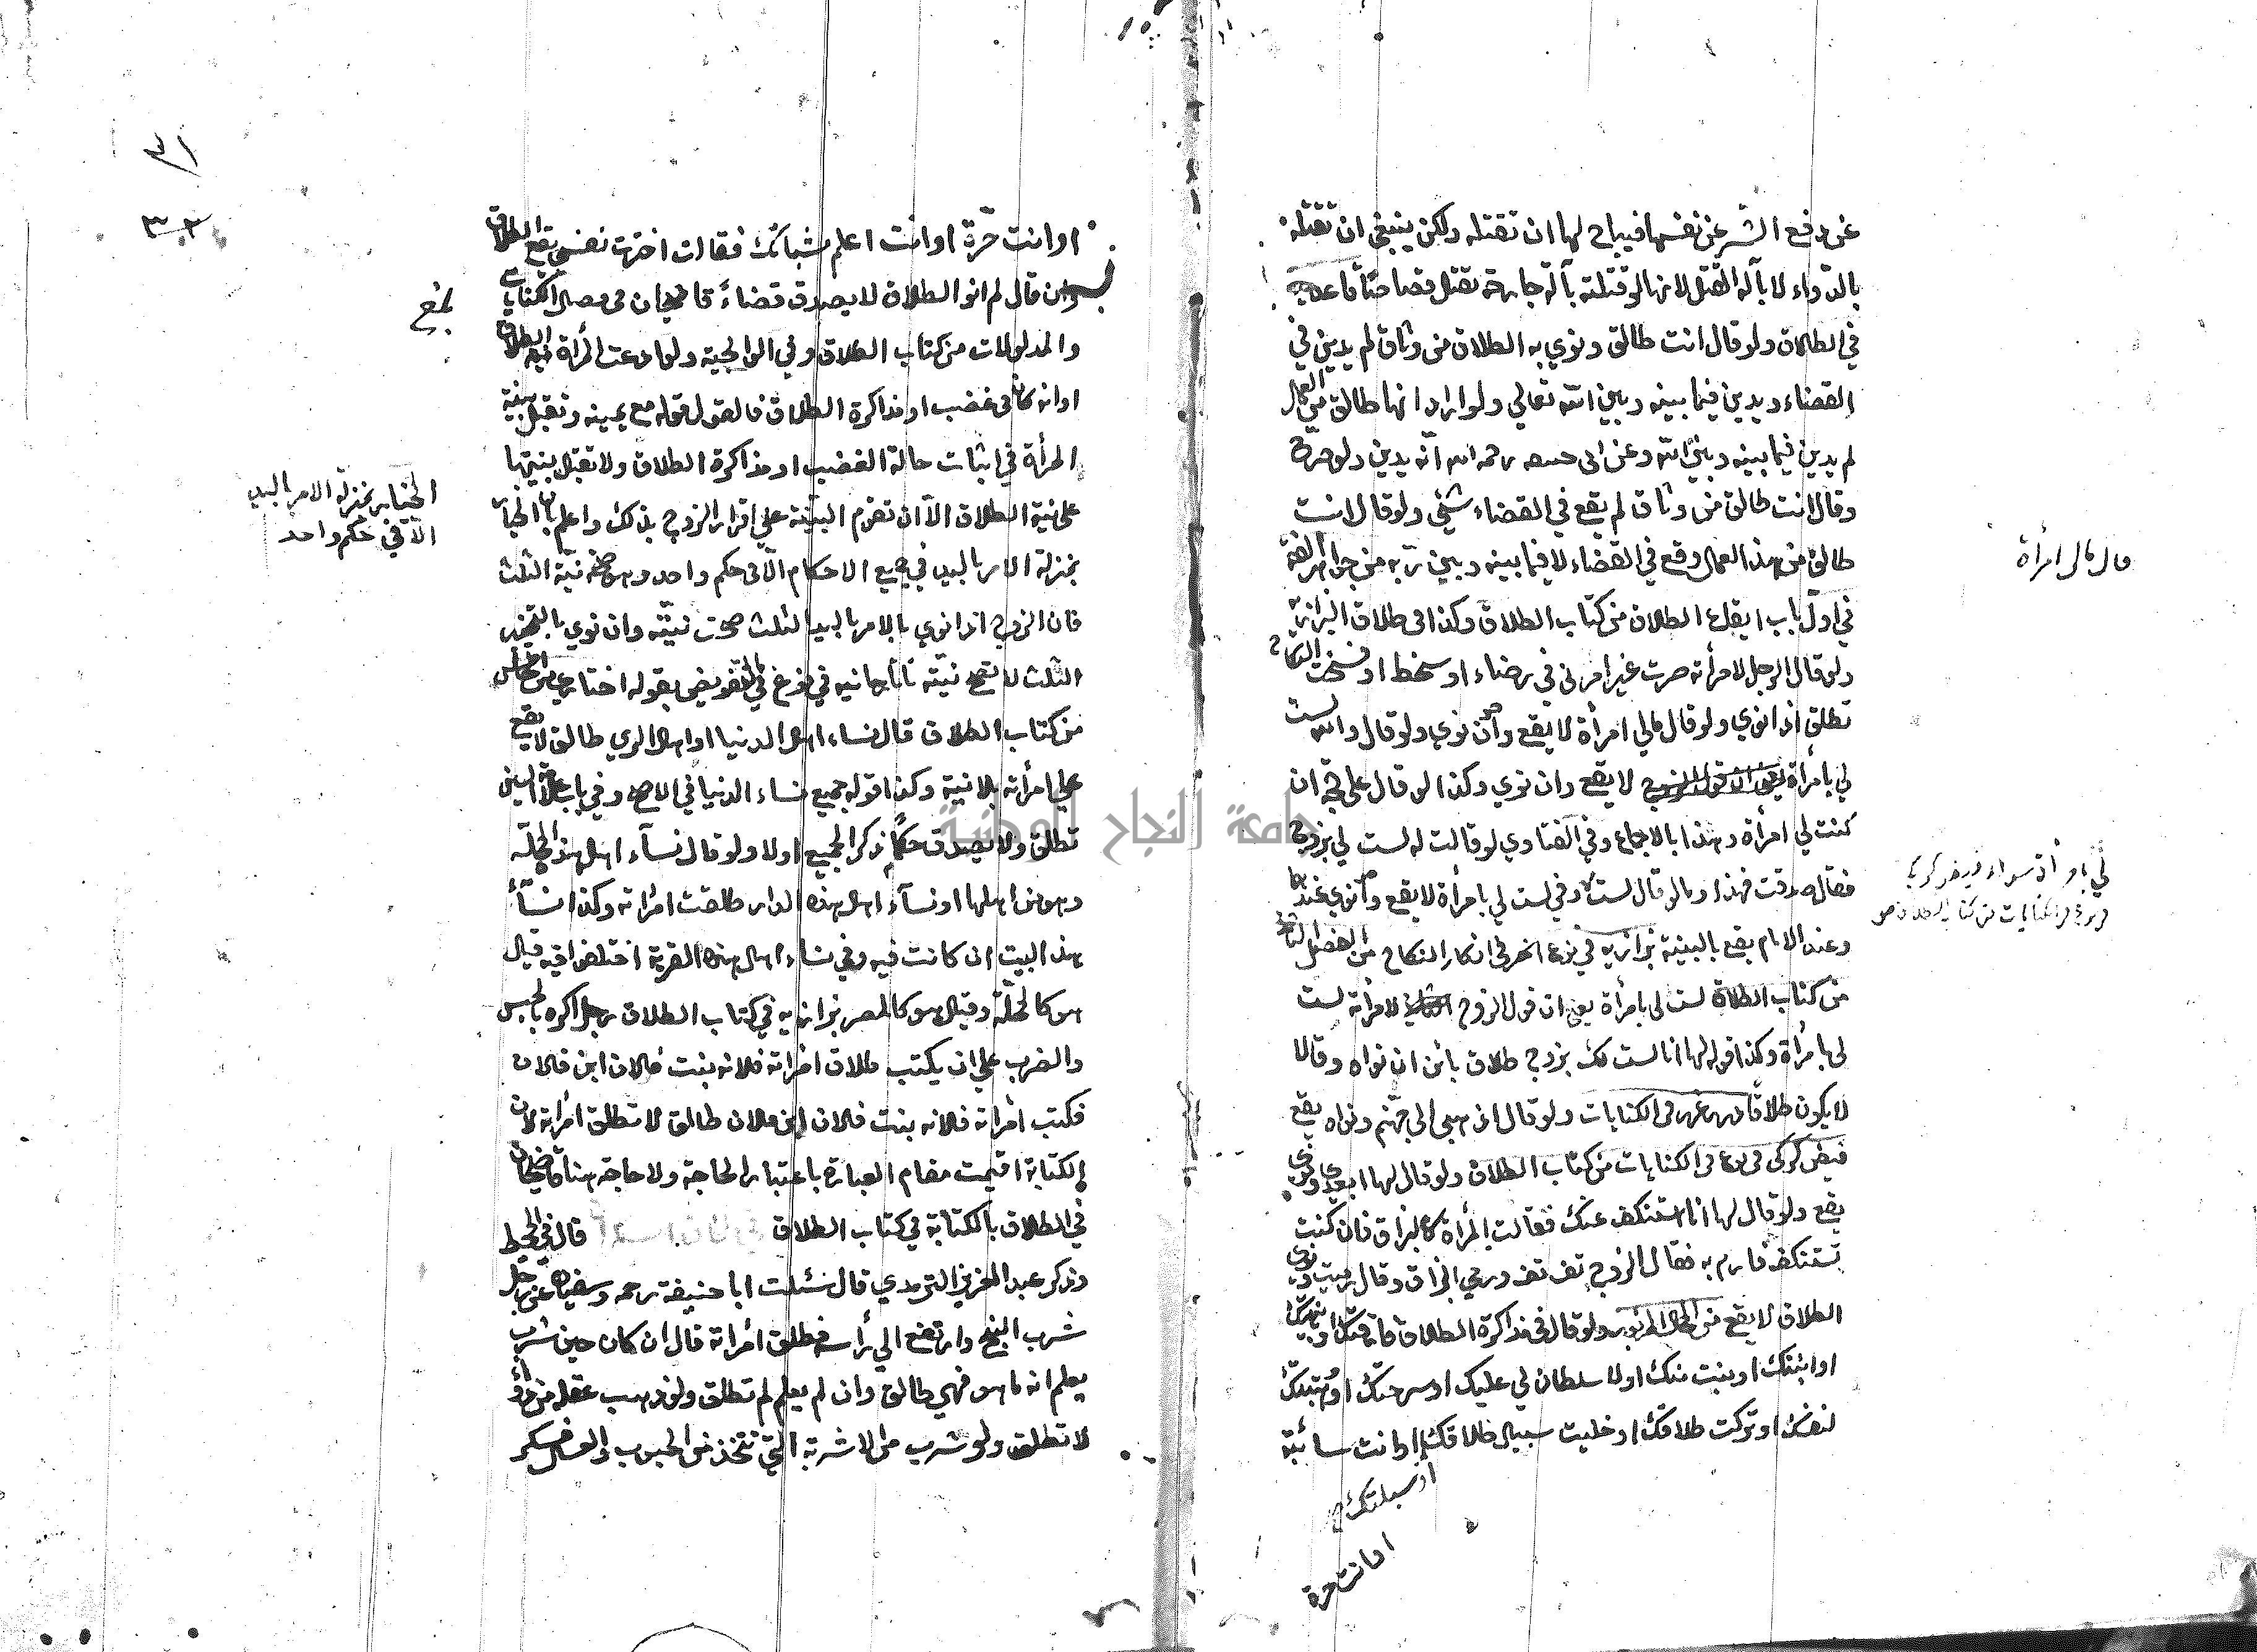 عن دفع الشر عن نفسها فيباح لها ان تقتله ولكن ينبغي ان تقتله
بالدواء لا بآلة القتل لانها لو قتلته بآلة جارحة تقتل قصاصا
في الطلاق ولو قال انت طالق ونوي به الطلاق من وثاق لم يدين في
القضاء ويدين فيما بينه وبين الله تعالي ولو اراد انها طالق من العمل
لم يدين فيما بينه وبين الله وعن ابى حنيفه رحمه الله انه يدين ولو صرح
وقال انت طالق من وثاق لم يقع في القضاء شئ ولو قال انت
طالق من هذا العمل وقع في القضاء لا فيما بينه وبين ربه من جواهر الفقه
في اول باب ايقاع الطلاق من كتاب الطلاق وكذا في طلاق البزازية
ولو قال الرجل لامرأته صرت غير امرأتى في رضاء او سخط او فسخت النكاح
تطلق اذا نوي ولو قال مالي امرأة لا يقع وان نوي ولو قال والله لست
لي بامرأة لا يقع وان نوي وكذا لو قال علي حجة ان
كنت لي امرأة وهذا بالاجماع وفي الفتاوي لو قالت له لست لي بزوج
فقال صدقت فهذا وما لو قال لست وفي لست لي بامرأة لا يقع وان نوي عندهما
وعند الامام يقع بالنية بزازيه في نوع اخر في انكار النكاح من الفصل
من كتاب الطلاق لست لى بامرأة يعني ان قول الزوج لامرأته لست
لى بامرأة وكذا قوله لها انا لست لك بزوج طلاق بائن ان نواه وقالا
لا يكون طلاقا في الكنايات ولو قال اذهبي الي جهنم ونواه يقع
فيض كركى في نوع في الكنايات من كتاب الطلاق ولو قال لها ابعدي ونوي
يقع ولو قال لها انا استنكف عنك فقالت المرأة كالبزاق فان كنت
تستنكف فارم به فقال الزوج تف تف ورمي البزاق وقال رميت ونوي
الطلاق لا يقع من المحل المزبور ولو قال في مذاكرة الطلاق فارقتك او باينتك
او ابنتك او بنت منك او لا سلطان لي عليك او سرحتك او وهبتك
لنفسك او تركت طلاقك او خليت سبيل طلاقك او انت سائبة
او سبلتك
او انت حرة
مال مالى امرأة
لي بامرأة سواء فيض كركي
او انت حرة او انت اعلم بشانك فقالت اخترت نفسي يقع الطلاق
وان قال لم انو الطلاق لا يصدق قضاء قاضيخان في فصل الكنايات
والمدلولات من كتاب الطلاق وفي الولوالجية ولو ادعت المرأة نية الطلاق
او انه كان في غضب او مذاكرة الطلاق فالقول قوله مع يمينه وتقبل بينة
المرأة في اثبات حالة الغضب او مذاكرة الطلاق ولا تقبل بينتها
على نية الطلاق الا ان تقوم البينة علي اقرار الزوج بذلك واعلم بان الخيار
بمنزلة الامر باليد في جميع الاحكام الا في حكم واحد وهو صحة نية الثلث
فان الزوج اذا نوي بالامر باليد الثلث صحت نيته وان نوي بالتخيير
الثلث لا تصح نيته تاتارخانيه في نوع في التفويض بقوله اختاري من الخامس
من كتاب الطلاق قال نساء اهل الدنيا او اهل الري طالق لا يقع
علي امرأته بلا نية وكذا قوله جميع نساء الدنيا في الاصح وفي باب علامة السين
تطلق ولا يصدق حكما ذكر الجميع اولا ولو قال نساء اهل هذه المحلة
وهو من اهلها او نساء اهل هذه الدار طلقت امرأته وكذا نساء
هذا البيت ان كانت فيه وفي نساء اهل هذه القرية اختلفوا فيه قيل
هو كالمحلة وقيل هو كالمصر بزازيه في كتاب الطلاق رجل اكره بالحبس
والضرب علي ان يكتب طلاق امرأته فلانه بنت فلان ابن فلان
فكتب امرأته فلانه بنت فلان ابن فلان طالق لا تطلق امرأته لان
الكتابة اقيمت مقام العبارة باعتبار الحاجة ولا حاجة هنا قاضيخان
في الطلاق بالكتابة في كتاب الطلاق قال في المحيط
وذكر عبد العزيز الترمدي قال سئلت ابا حنيفة رحمه وسفيان عن رجل
شرب البنج وارتفع الي رأسه فطلق امرأته قال ان كان حين شرب
يعلم انه ما هو فهي طالق وان لم يعلم لم تطلق ولو ذهب عقله من دواء
لا تطلق ولو شرب من الاشربة التي تتخذ من الحبوب والعسل فسكر
بلغ
الخيار بمنزلة الامر باليد
الا في حكم واحد
٣١
جامعة النجاح الوطنية